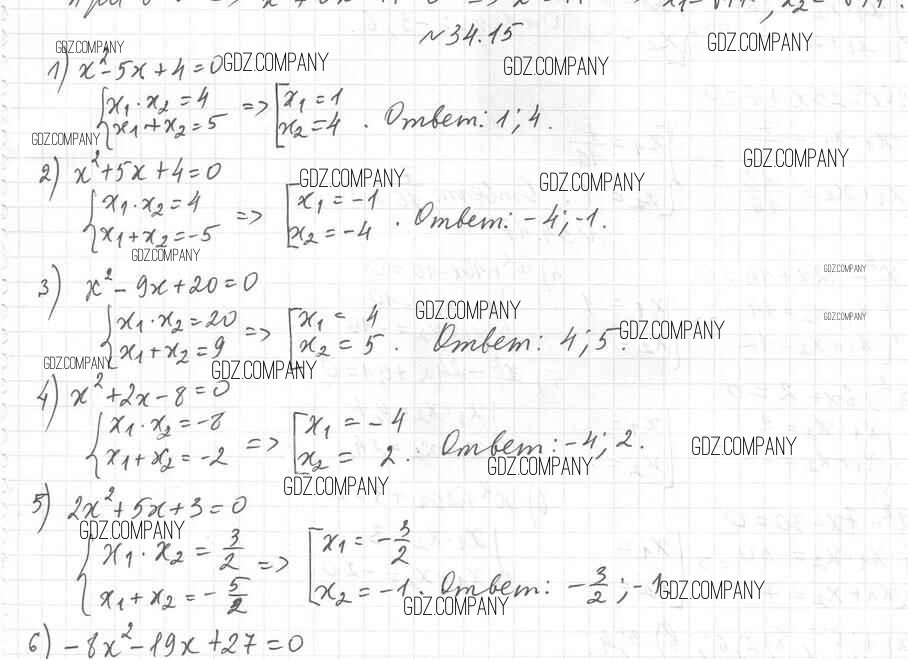 №34.15
GDZ.COMPANY
GDZ.COMPANY
1) x²-5x+4=0 GDZ.COMPANY
GDZ.COMPANY
{x₁·x₂=4 => [x₁=1
{x₁+x₂=5 [x₂=4. Ответ: 1; 4.
GDZ.COMPANY
GDZ.COMPANY
2) x²+5x+4=0
GDZ.COMPANY
GDZ.COMPANY
{x₁·x₂=4 => [x₁=-1
{x₁+x₂=-5 [x₂=-4. Ответ: -4; -1.
GDZ.COMPANY
GDZ.COMPANY
3) x²-9x+20=0
GDZ.COMPANY
GDZ.COMPANY
{x₁·x₂=20 => [x₁=4
{x₁+x₂=9 [x₂=5. Ответ: 4; 5.
GDZ.COMPANY
GDZ.COMPANY
GDZ.COMPANY
4) x²+2x-8=0
{x₁·x₂=-8 => [x₁=-4
{x₁+x₂=-2 [x₂=2. Ответ: -4; 2.
GDZ.COMPANY
GDZ.COMPANY
GDZ.COMPANY
5) 2x²+5x+3=0
GDZ.COMPANY
{x₁·x₂=3/2 => [x₁=-3/2
{x₁+x₂=-5/2 [x₂=-1. Ответ: -3/2; -1
GDZ.COMPANY
GDZ.COMPANY
6) -8x²-19x+27=0